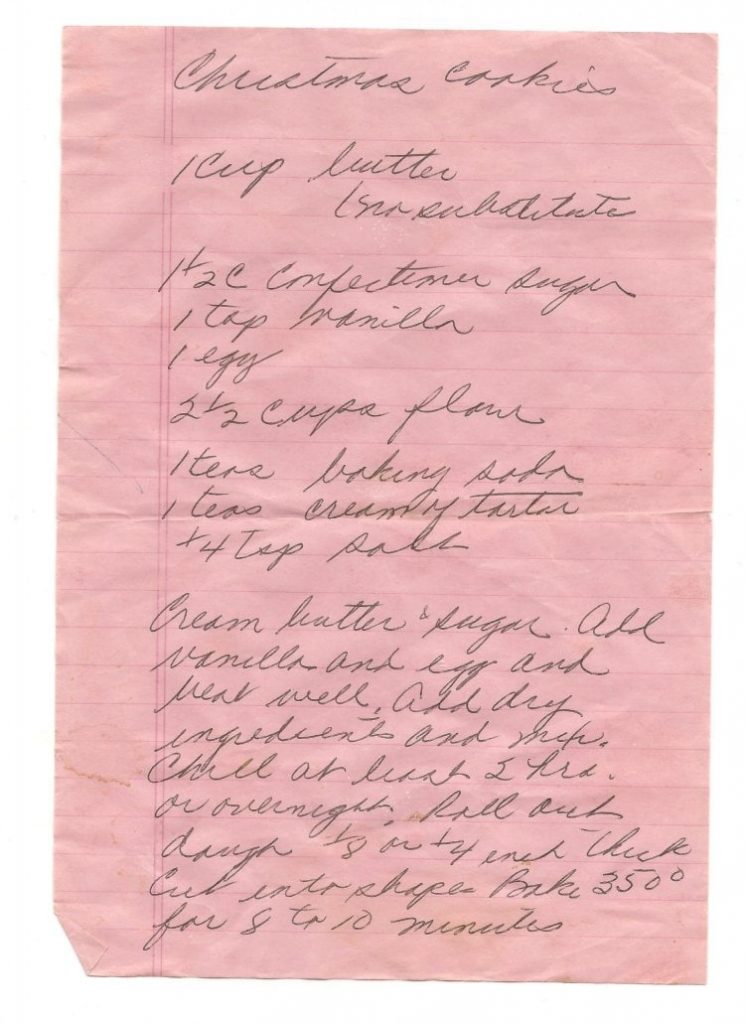 Christmas Cookies
1 Cup butter
(no substitute
1 1/2 C Confectioner sugar
1 tsp vanilla
1 egg
2 1/2 cups flour
1 teas baking soda
1 teas cream of tartar
1/4 tsp salt
Cream butter & sugar. Add
vanilla and egg and
beat well. Add dry
ingredients and mix.
Chill at least 2 hrs.
or overnight. Roll out
dough 1/8 or 1/4 inch thick
Cut into shapes Bake 350°
for 8 to 10 minutes